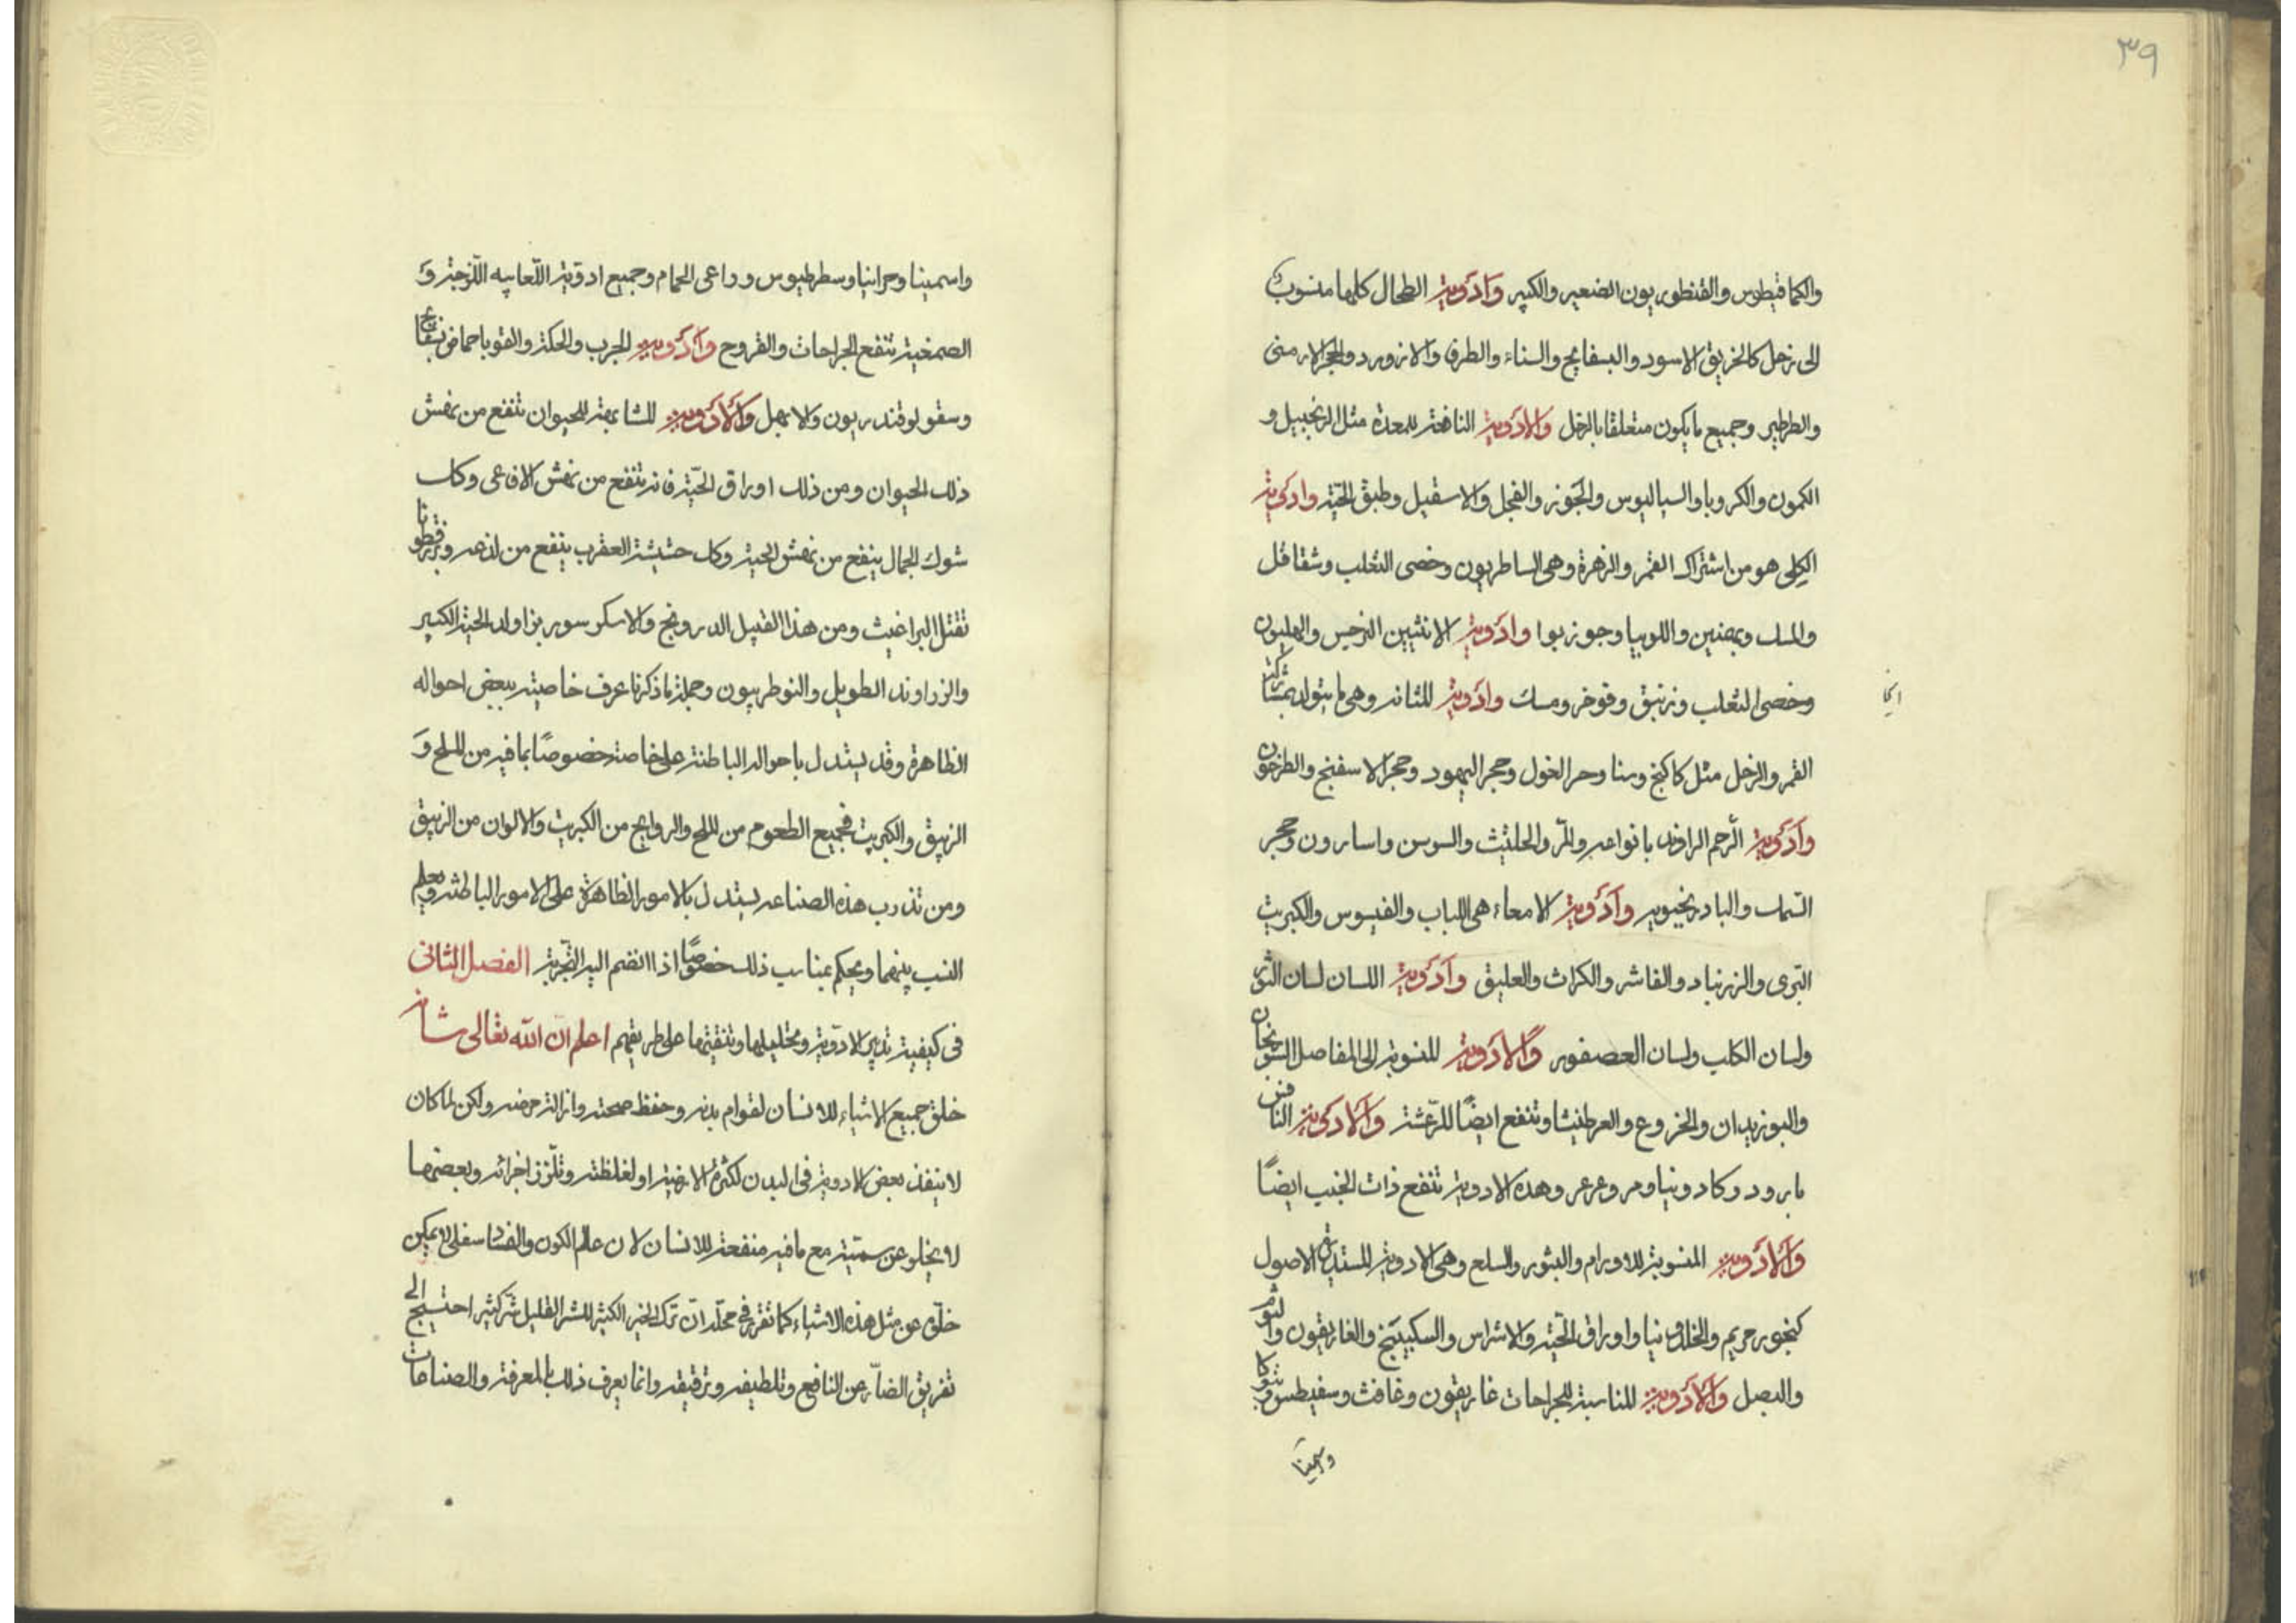 ٣٩
والكمافيطوس والقنطوريون الصغير والكبير وادوية الطحال كلها منسوب
الى زحل كالخربق الاسود والبسفايج والسناء والطرفا والازورد والحجر الارمنى
والطرطير وجميع ما يكون متعلقا بالزحل والادوية النافعة للمعدة مثل الزنجبيل و
الكمون والكرويا والسياليوس والجوز والفجل والاسقيل وطبق الحية وادوية
الكلى هو من اشتراك القمر والزهرة وهى الساطريون وخصى الثعلب وشقاقل
والمسك وبوا وادوية الانثيين النرجس والهليون
وخصى الثعلب وزنبق ومسك وادوية للمثانه وهى ما يتولد بمشاركة
القمر والزحل مثل كاكنج وحجر اليهود وحجر الاسفنج والطرخون
وادوية الرحم الراوند بانواعه والمر والحلتيث والسوسن واسارون وحجر
السماك والبادرنجبويه وادوية الامعاء هى اللباب والفيسوس والكبريت
البرى والزرنباد والفاشر والكراث والعليق وادوية اللسان لسان الثور
ولسان الكلب ولسان العصفور والادوية المنسوبة الى المفاصل السورنجان
والبوزيدان والخروع والعرطنيثا وتنفع ايضا للرعشة والادوية
وعرعر وهذه الادوية تنفع ذات الجنب ايضًا
والادوية المنسوبة للاورام والبثور والسلع وهى الادوية المستديرة الاصول
كبخور مريم واوراق الحية والاشراس والسكبينج والغاريقون والثوم
والبصل والادوية المناسبة للجراحات غاريقون وغافث
واسمينا
واسمينا وسطرطيوس وراعى الحمام وجميع ادوية اللعابيه اللزجة و
الصمغية تنفع الجراحات والقروح وادوية للجرب والحكة والقوبا حماض
وسقولوقندريون والابهل والادوية المشابهة للحيوان تنفع من نهش
ذلك الحيوان ومن ذلك اوراق الحية فانه تنفع من نهش الافاعى وكك
شوك الجمال ينفع من نهش الحية وكك حشيشة العقرب ينفع من لذعه وبزرقطونا
تقتل البراغيث ومن هذا القبيل الدرونج والحية الكبير
والزراوند الطويل والنوطربيون وجملة ما ذكرنا عرف خاصيته ببعض احواله
الظاهرة وقد يستدل باحواله الباطنة على خاصته خصوصًا بما فيه من الملح و
الزيبق والكبريت فجميع الطعوم من الملح والروايح من الكبريت والالوان من الزيبق
ومن تدرب هذه الصناعه يستدل بالامور الظاهرة على الامور الباطنة ويعلم
النسب بينهما ويحكم بمناسب ذلك خصوصًا اذا انضم اليه التجربة الفصل الثانى
فى كيفية تدبير الادوية وتحليلها وتنقيتها على طريقهم اعلم ان الله تعالى شانه
خلق جميع الاشياء للانسان لقوام بدنه وحفظ صحته وازالة مرضه ولكن لما كان
لا ينفذ بعض الادوية فى البدن لكثرة الارضية او لغلظته وتلزز اجزائه وبعضها
لا يخلو عن سمية مع ما فيه منفعة للانسان لان عالم الكون والفساد سفلى لا يمكن
خلوه عن مثل هذه الاشياء كما تقرر فى محله ان ترك الخير الكثير للشر القليل شر كثير احتيج الى
تفريق الضار عن النافع وتلطيفه وترقيقه وانما يعرف ذلك بالمعرفة والصناعات